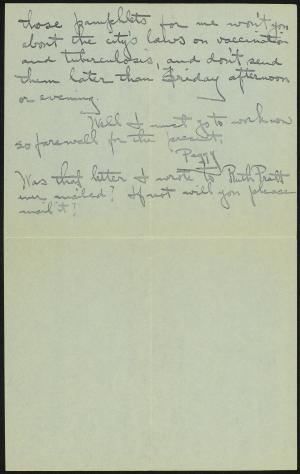 those pamphlets for me won't you
about the city's laws on vaccination
and tuberculosis, and don't send
them later than Friday afternoon
or evening.
Well I must go to work now
so farewell for the present.
Peggy
Was that letter I wrote to Ruth Pratt
ever mailed? If not will you please
mail it?